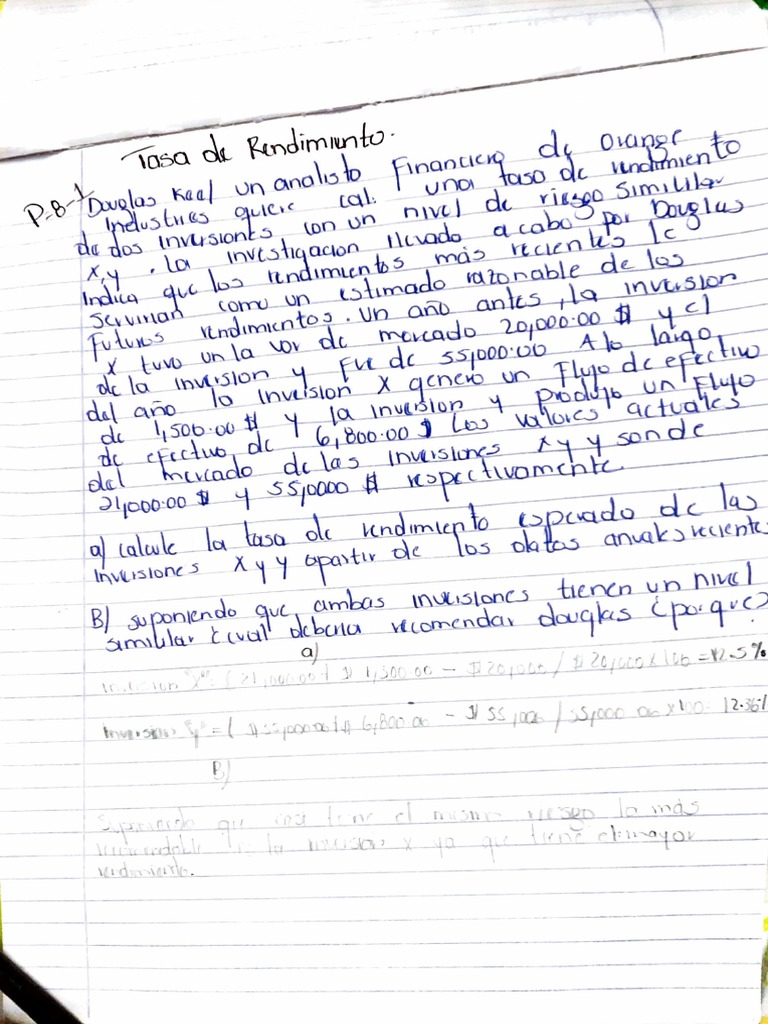 Tasa de Rendimiento.
P-8-1 Douglas Keel un analisto Financiero de Orange
Industries quiere cal. una taso de rendimiento
de dos inversiones con un nivel de riesgo similar
x, y . La investigacion llevado acabo por Douglas
Indica que los rendimientos más recientes le
Servirian como un estimado razonable de los
Futuros rendimientos. Un año antes, la inversion
x tuvo un la vor de mercado 20,000.00 $ y el
de la inversion y Fue de 55,000.00 A lo largo
del año la inversion X genero un Flujo de efectivo
de 1,500.00 $ y la inversion y Produjo un Flujo
de efectivo de 6,800.00 $ Los valores actuales
del mercado de las inversiones x y y son de
21,000.00 $ y 55,0000 $ respectivamente.
a) calcule la tasa de rendimiento esperado de las
inversiones x y y apartir de los datos anuales reciente
B) suponiendo que ambas inversiones tienen un nivel
similar ¿cual deberia recomendar douglas ¿porque?
a)
Inversion "X" = (21,000.00 + $ 1,500.00 - $ 20,000 / $ 20,000 x 100 = 12.5%
Inversion "y" = ( $ 55,000.00 + $ 6,800.00 - $ 55,000 / 55,000.00 x 100: 12.36%
B)
Suponiendo que tiene el mismo riesgo lo más
recomendable la inversion x ya que tiene el mayor
rendimiento.